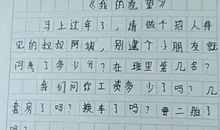 《我的愿望》
马上过年了，请做个招人待
见的叔叔阿姨，别逮个小朋友就
问考了多少分？在班里第几名？
我们问你工资多少了吗？几
套房了吗？换车了吗？要二胎了
吗？